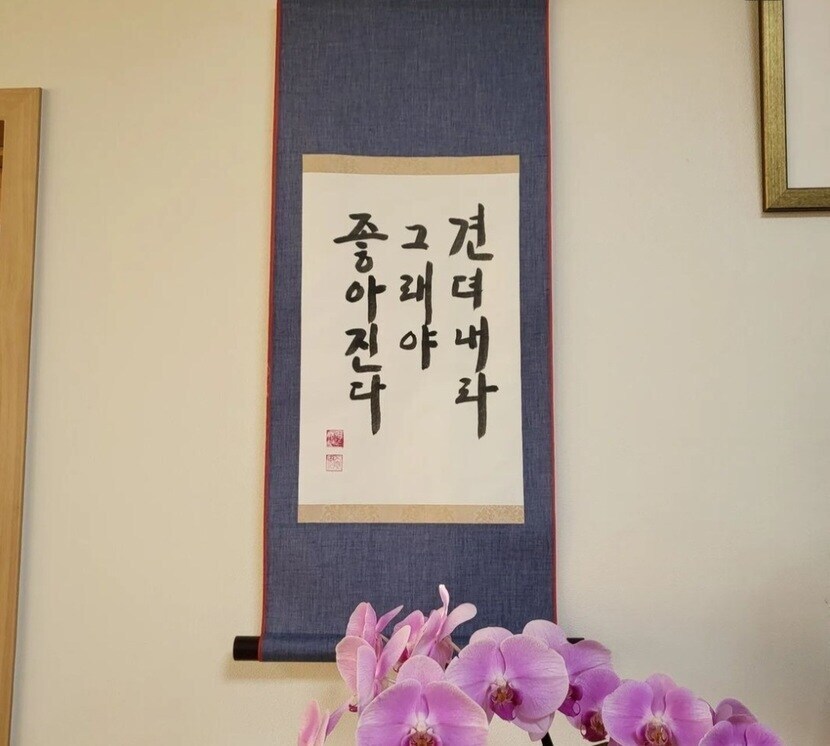 견뎌내라
그래야
좋아진다